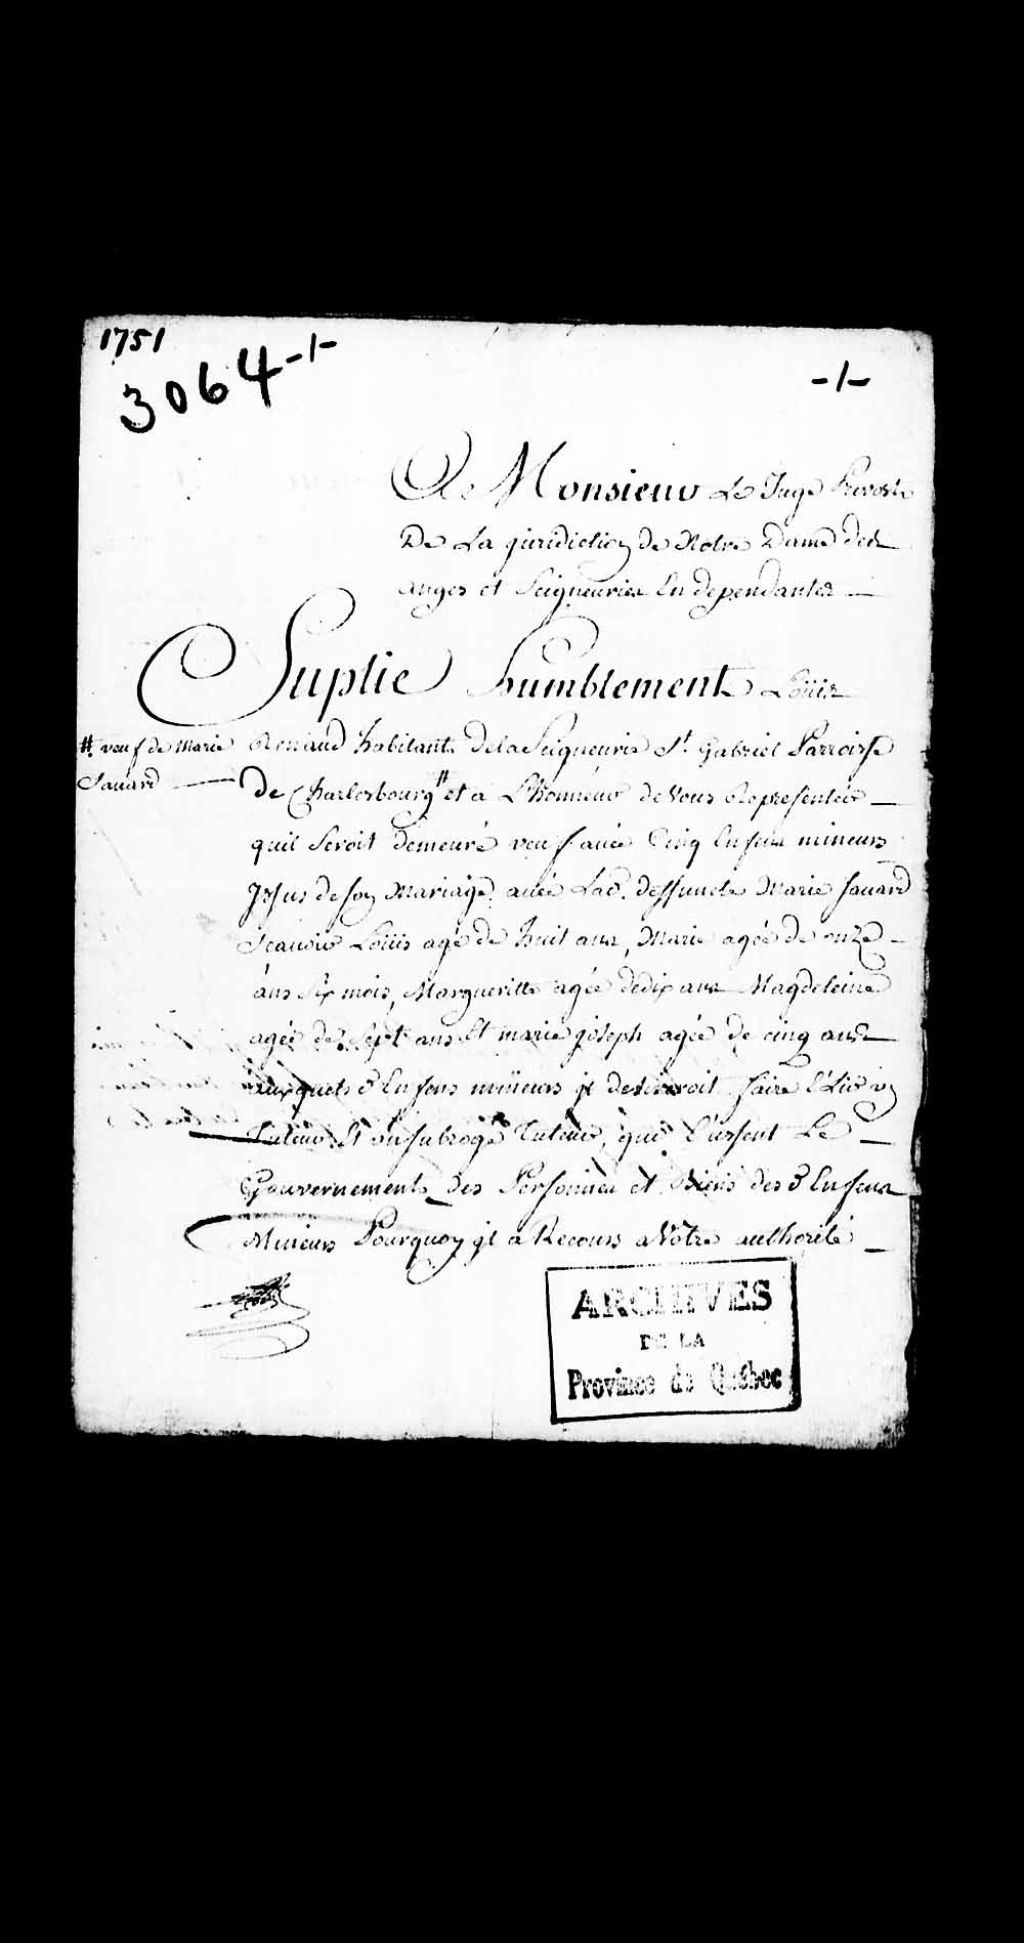 1751
3064-1-
-1-
A Monsieur Le Juge Prevost
De La juridiction de Notre Dame des
anges et Seigneuries En dependantes
Suplie humblement Loüis
# veuf de Marie
Sauard
Renaud habitant de la Seigneurie St Gabriel Parroisse
de Charlesbourg # et a L'honneur de Vous Representer
quil Seroit demeuré veuf auec Cinq Enfens mineurs
Jssus de son Mariage auec Lad. deffuncte Marie Sauard
Scauoir Loüis agé de huit ans, Marie agée de onze
ans Six mois, Margueritte agée de dix ans Magdeleine
agée de Sept ans Et marie joseph agée de cinq ans
auxquels d Enfens mineurs jl desireroit faire Elire un
Tuteur Et un subrogé Tuteur, qui Eussent Le
Gouvernement des Personnes et Biens des d Enfens
Mineurs Pourquoy jl a Recours a Votre authorité
ARCHIVES
DE LA
Province de Québec